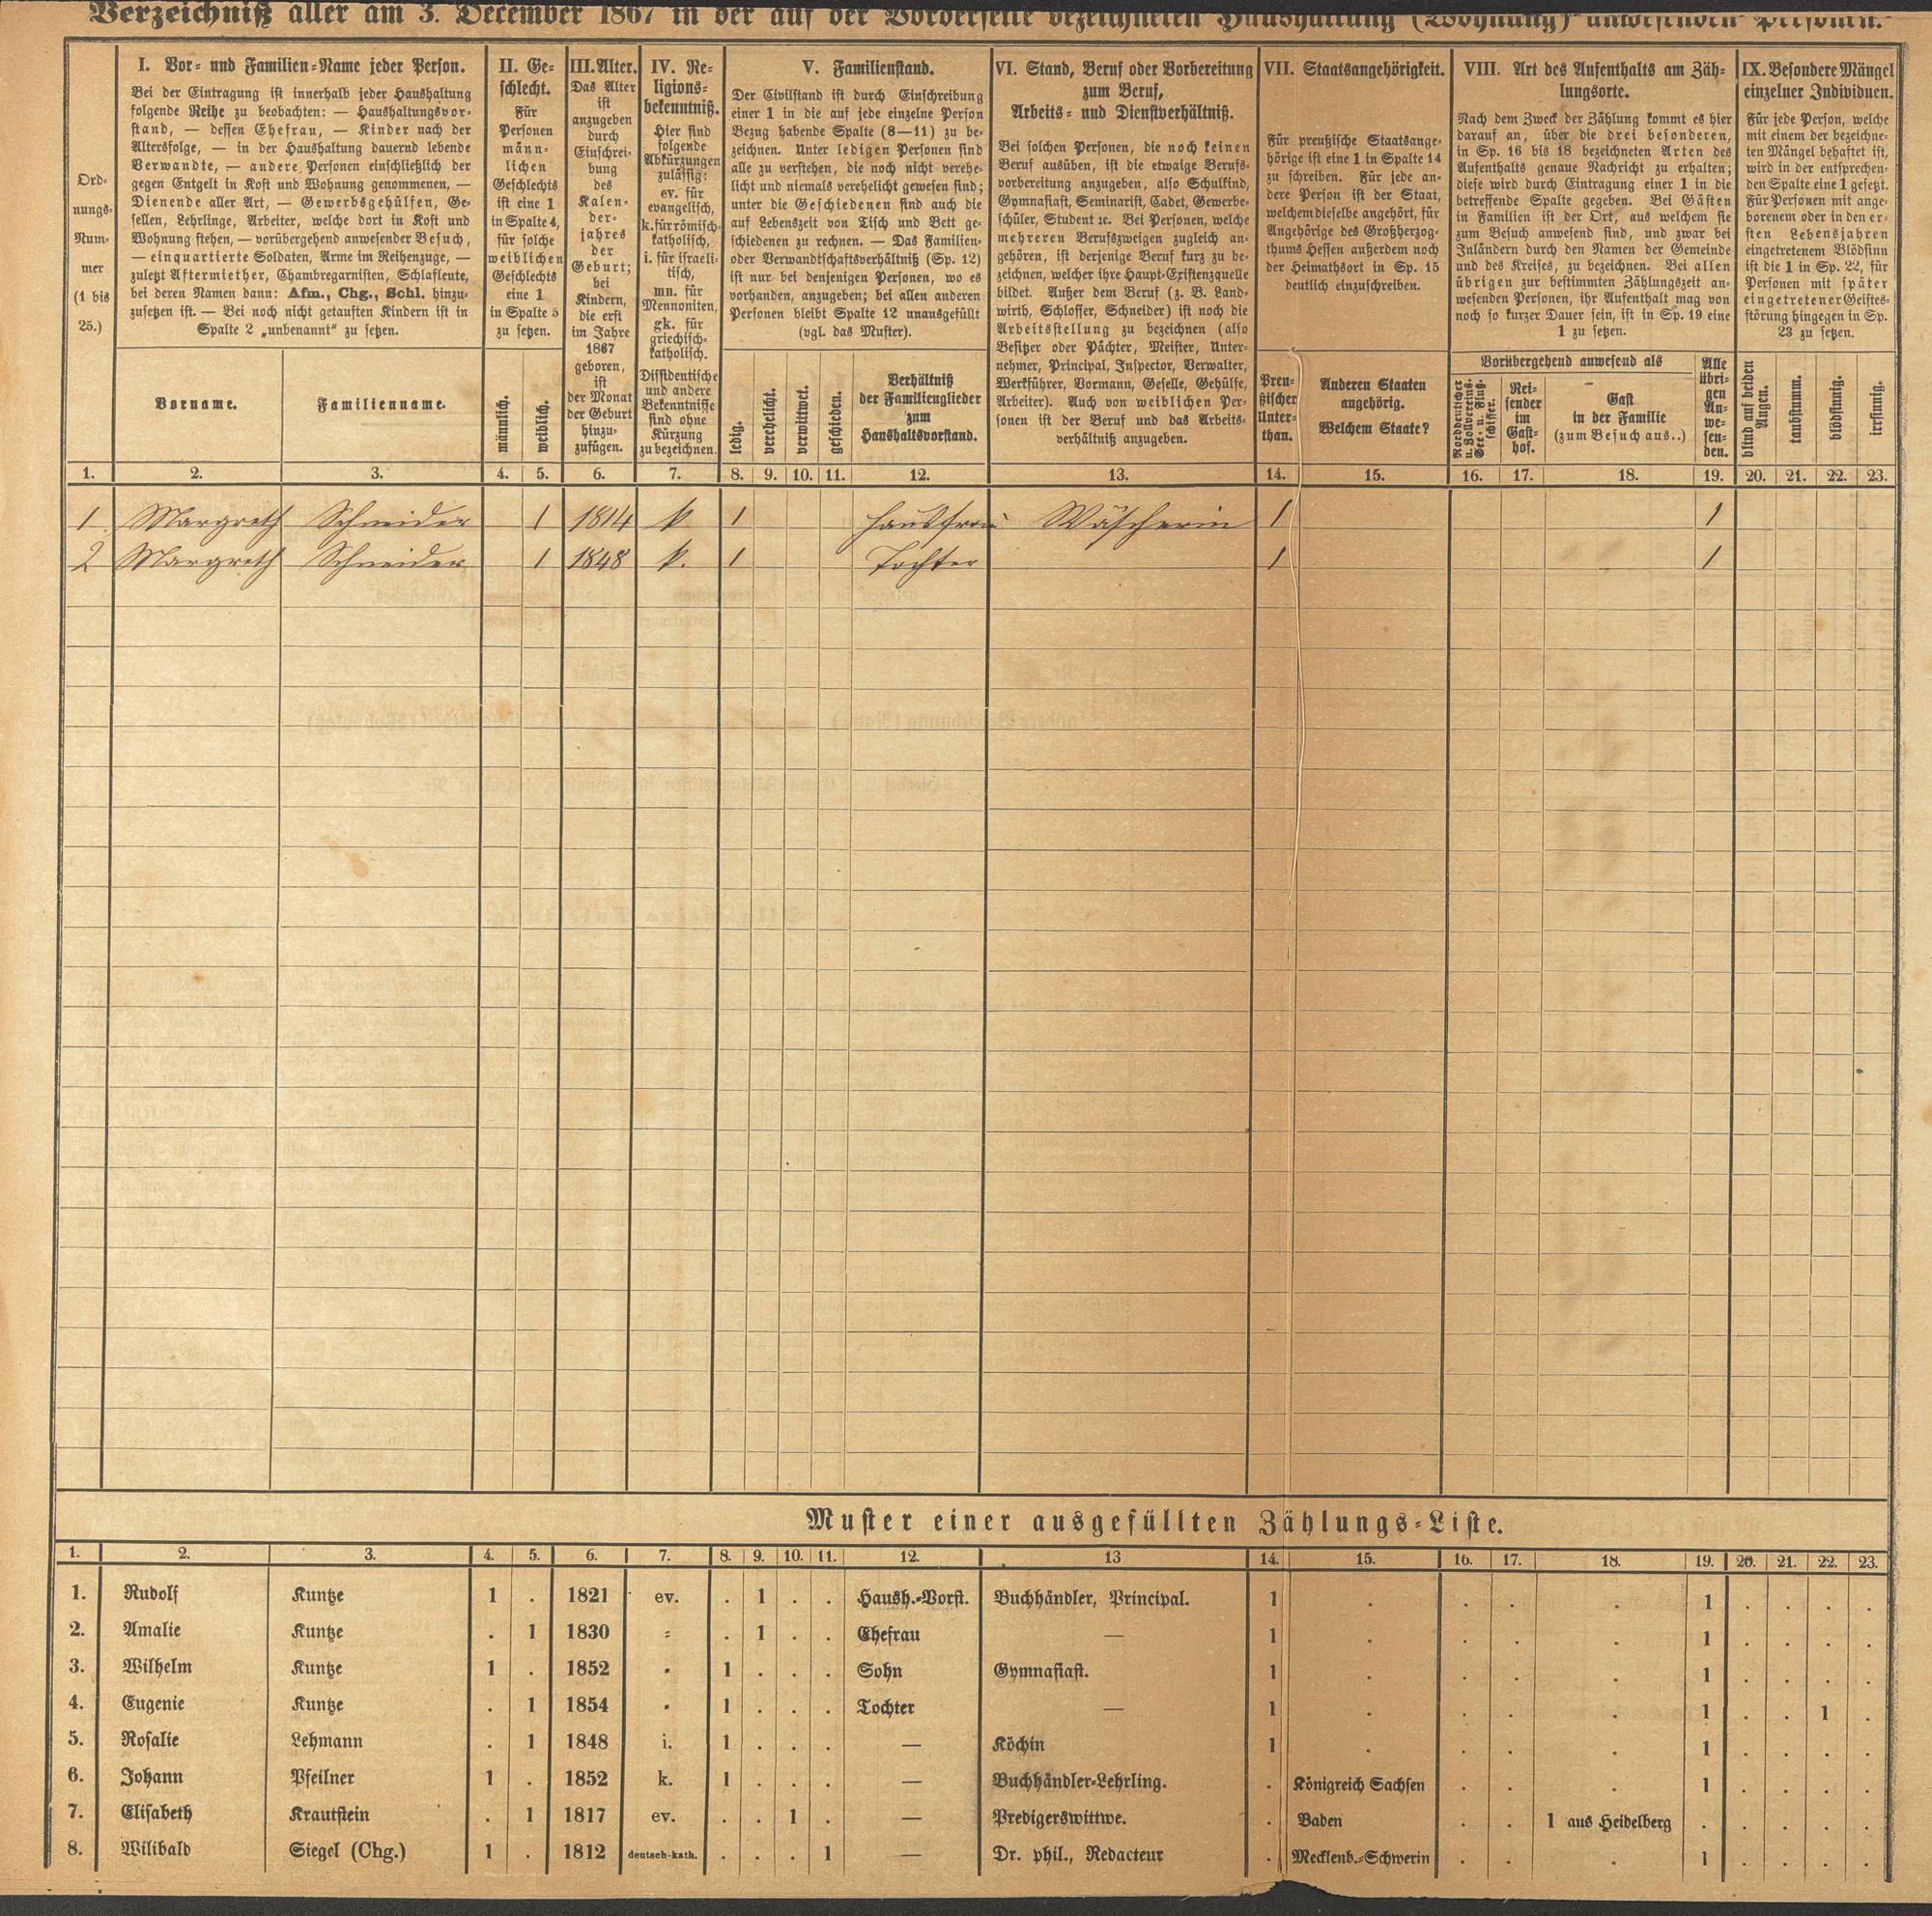 Verzeichniß aller am 3. December 1867 in der auf der Vorderseite bezeichneten Haushaltung (Wohnung) anwesenden Personen.
Ord-
nungs-
Num-
mer
(1 bis
25.)
I. Vor- und Familien-Name jeder Person.
Bei der Eintragung ist innerhalb jeder Haushaltung
folgende Reihe zu beobachten: — Haushaltungsvor-
stand, — dessen Ehefrau, — Kinder nach der
Altersfolge, — in der Haushaltung dauernd lebende
Verwandte, — andere Personen einschließlich der
gegen Entgelt in Kost und Wohnung genommenen, —
Dienende aller Art, — Gewerbsgehülfen, Ge-
sellen, Lehrlinge, Arbeiter, welche dort in Kost und
Wohnung stehen, — vorübergehend anwesender Besuch,
— einquartierte Soldaten, Arme im Reihenzuge, —
zuletzt Aftermiether, Chambregarnisten, Schlafleute,
bei deren Namen dann: Afm., Chg., Schl. hinzu-
zusetzen ist. — Bei noch nicht getauften Kindern ist in
Spalte 2 „unbenannt“ zu setzen.
Vorname.
Familienname.
II. Ge-
schlecht.
Für
Personen
männ-
lichen
Geschlechts
ist eine 1
in Spalte 4,
für solche
weiblichen
Geschlechts
eine 1
in Spalte 5
zu setzen.
männlich.
weiblich.
III. Alter.
Das Alter
ist
anzugeben
durch
Einschrei-
bung
des
Kalen-
der-
jahres
der
Geburt;
bei
Kindern,
die erst
im Jahre
1867
geboren,
ist
der Monat
der Geburt
hinzu-
zufügen.
IV. Re-
ligions-
bekenntniß.
Hier sind
folgende
Abkürzungen
zulässig:
ev. für
evangelisch,
k. für römisch-
katholisch,
i. für israeli-
tisch,
mn. für
Mennoniten,
gk. für
griechisch-
katholisch.
Dissidentische
und andere
Bekenntnisse
sind ohne
Kürzung
zu bezeichnen.
V. Familienstand.
Der Civilstand ist durch Einschreibung
einer 1 in die auf jede einzelne Person
Bezug habende Spalte (8—11) zu be-
zeichnen. Unter ledigen Personen sind
alle zu verstehen, die noch nicht verehe-
licht und niemals verehelicht gewesen sind;
unter die Geschiedenen sind auch die
auf Lebenszeit von Tisch und Bett ge-
schiedenen zu rechnen. — Das Familien-
oder Verwandtschaftsverhältniß (Sp. 12)
ist nur bei denjenigen Personen, wo es
vorhanden, anzugeben; bei allen anderen
Personen bleibt Spalte 12 unausgefüllt
(vgl. das Muster).
ledig.
verehelicht.
verwittwet.
geschieden.
Verhältniß
der Familienglieder
zum
Haushaltsvorstand.
VI. Stand, Beruf oder Vorbereitung
zum Beruf,
Arbeits- und Dienstverhältniß.
Bei solchen Personen, die noch keinen
Beruf ausüben, ist die etwaige Berufs-
vorbereitung anzugeben, also Schulkind,
Gymnasiast, Seminarist, Cadet, Gewerbe-
schüler, Student ꝛc. Bei Personen, welche
mehreren Berufszweigen zugleich an-
gehören, ist derjenige Beruf kurz zu be-
zeichnen, welcher ihre Haupt-Existenzquelle
bildet. Außer dem Beruf (z. B. Land-
wirth, Schlosser, Schneider) ist noch die
Arbeitsstellung zu bezeichnen (also
Besitzer oder Pächter, Meister, Unter-
nehmer, Principal, Inspector, Verwalter,
Werkführer, Vormann, Geselle, Gehülfe,
Arbeiter). Auch von weiblichen Per-
sonen ist der Beruf und das Arbeits-
verhältniß anzugeben.
VII. Staatsangehörigkeit.
Für preußische Staatsange-
hörige ist eine 1 in Spalte 14
zu schreiben. Für jede an-
dere Person ist der Staat,
welchem dieselbe angehört, für
Angehörige des Großherzog-
thums Hessen außerdem noch
der Heimathsort in Sp. 15
deutlich einzuschreiben.
Preu-
ßischer
Unter-
than.
Anderen Staaten
angehörig.
Welchem Staate?
VIII. Art des Aufenthalts am Zäh-
lungsorte.
Nach dem Zweck der Zählung kommt es hier
darauf an, über die drei besonderen,
in Sp. 16 bis 18 bezeichneten Arten des
Aufenthalts genaue Nachricht zu erhalten;
diese wird durch Eintragung einer 1 in die
betreffende Spalte gegeben. Bei Gästen
in Familien ist der Ort, aus welchem sie
zum Besuch anwesend sind, und zwar bei
Inländern durch den Namen der Gemeinde
und des Kreises, zu bezeichnen. Bei allen
übrigen zur bestimmten Zählungszeit an-
wesenden Personen, ihr Aufenthalt mag von
noch so kurzer Dauer sein, ist in Sp. 19 eine
1 zu setzen.
Vorübergehend anwesend als
Norddeutscher
u. Zollvereins-
See- u. Fluß-
schiffer.
Rei-
sender
im
Gast-
hof.
Gast
in der Familie
(zum Besuch aus..)
Alle
übri-
gen
An-
we-
sen-
den.
IX. Besondere Mängel
einzelner Individuen.
Für jede Person, welche
mit einem der bezeichne-
ten Mängel behaftet ist,
wird in der entsprechen-
den Spalte eine 1 gesetzt.
Für Personen mit ange-
borenem oder in den er-
sten Lebensjahren
eingetretenem Blödsinn
ist die 1 in Sp. 22, für
Personen mit später
eingetretener Geistes-
störung hingegen in Sp.
23 zu setzen.
blind auf beiden
Augen.
taubstumm.
blödsinnig.
irrsinnig.
1. 2. 3. 4. 5. 6. 7. 8. 9. 10. 11. 12. 13. 14. 15. 16. 17. 18. 19. 20. 21. 22. 23.
1 Margreth Schneider 1 1814 k 1 Hausfrau Wäscherin 1 1
2 Margreth Schneider 1 1848 k. 1 Tochter 1 1
Muster einer ausgefüllten Zählungs-Liste.
1. 2. 3. 4. 5. 6. 7. 8. 9. 10. 11. 12. 13 14. 15. 16. 17. 18. 19. 20. 21. 22. 23.
1. Rudolf Kuntze 1 . 1821 ev. . 1 . . Haush.-Vorst. Buchhändler, Principal. 1 . . . . 1 . . . .
2. Amalie Kuntze . 1 1830 = . 1 . . Ehefrau — 1 . . . . 1 . . . .
3. Wilhelm Kuntze 1 . 1852 " 1 . . . Sohn Gymnasiast. 1 . . . . 1 . . . .
4. Eugenie Kuntze . 1 1854 " 1 . . . Tochter — 1 . . . . 1 . . 1 .
5. Rosalie Lehmann . 1 1848 i. 1 . . . — Köchin 1 . . . . 1 . . . .
6. Johann Pfeilner 1 . 1852 k. 1 . . . — Buchhändler-Lehrling. . Königreich Sachsen . . . 1 . . . .
7. Elisabeth Krautstein . 1 1817 ev. . . 1 . — Predigerswittwe. . Baden . . 1 aus Heidelberg . . . . .
8. Wilibald Siegel (Chg.) 1 . 1812 deutsch-kath. . . . 1 — Dr. phil., Redacteur . Mecklenb.-Schwerin . . . 1 . . . .